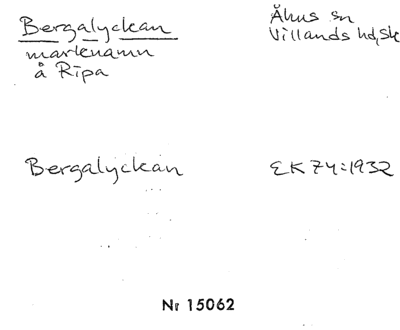 Bergalyckan
markenamn
å Ripa
Åhus sn
Villands hd, Sk
Bergalyckan
EK 74:1932
Nr 15062